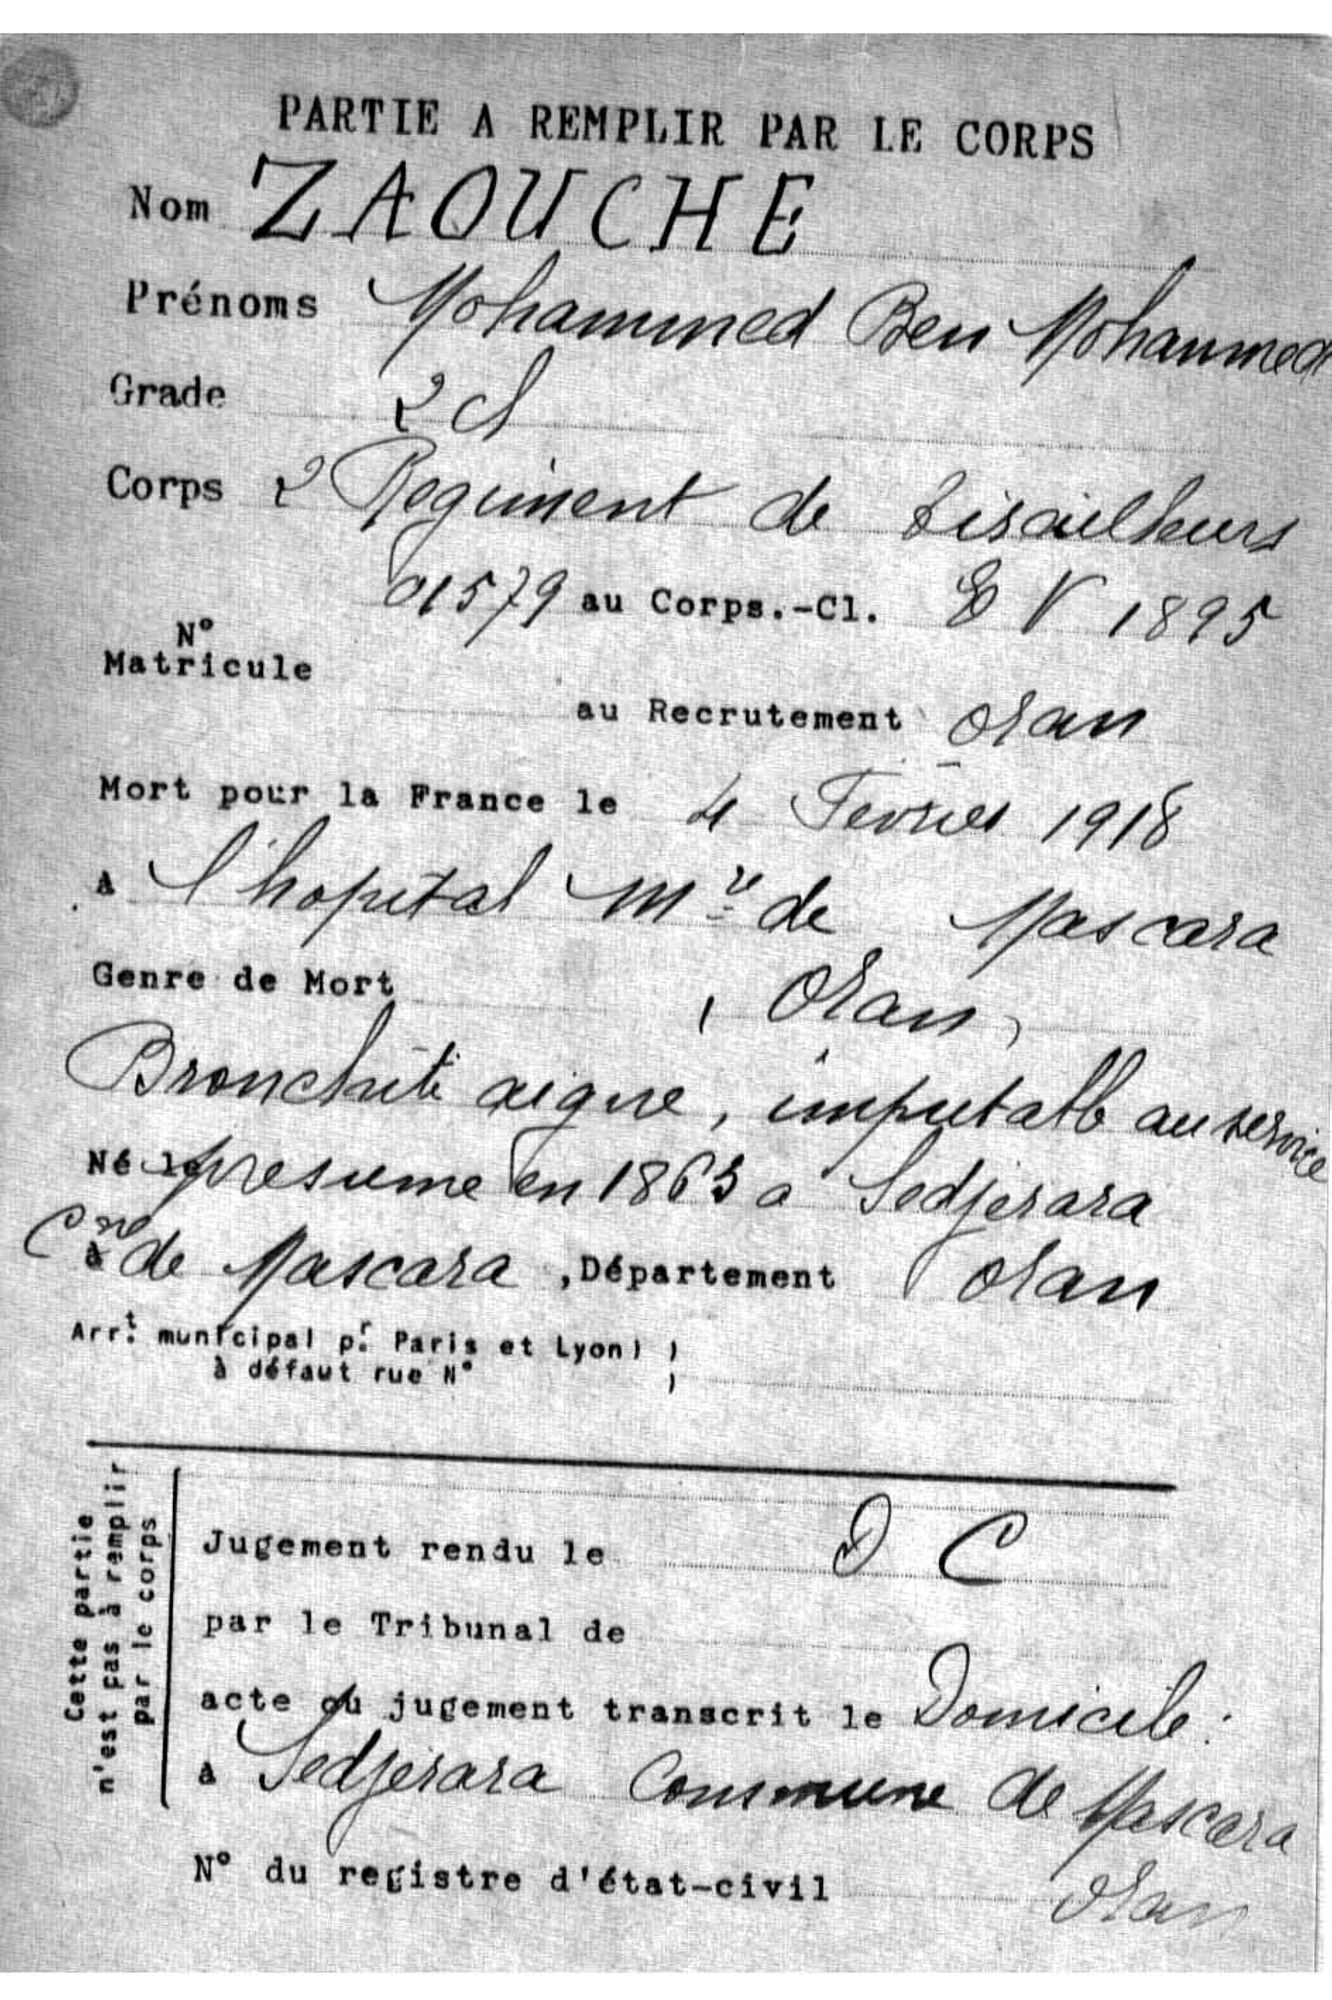 PARTIE A REMPLIR PAR LE CORPS
Nom ZAOUCHE
Prénoms Mohammed Ben Mohammed
Grade 2 cl
Corps 2 Regiment de tirailleurs
01579 au Corps.-Cl. E V 1895
N°
Matricule
au Recrutement Oran
Mort pour la France le 4 Fevrier 1918
A l'hopital Mre de Mascara
Genre de Mort , Oran,
Bronchite aigue, imputable au service
Né le presume en 1863 a Sedjerara
à Cne de Mascara, Département Oran
Arr.t municipal p.r Paris et Lyon)
à défaut rue N°
Cette partie
n'est pas à remplir
par le corps
Jugement rendu le D C
par le Tribunal de
acte ou jugement transcrit le Domicile :
à Sedjerara Commune de Mascara
Oran
N° du registre d'état-civil